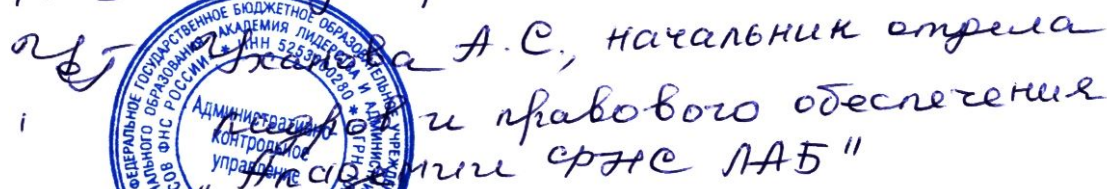 Уханова А.С., начальник отдела
кадров и правового обеспечения
"Академии ФНС ЛАБ"
ФЕДЕРАЛЬНОЕ ГОСУДАРСТВЕННОЕ БЮДЖЕТНОЕ ОБРАЗОВАТЕЛЬНОЕ УЧРЕЖД
АКАДЕМИЯ ЛИДЕРСТВА И АДМИНИС
ФНС РОССИИ * ИНН 5253000280 * ОГРН
Административно
контрольное
управление